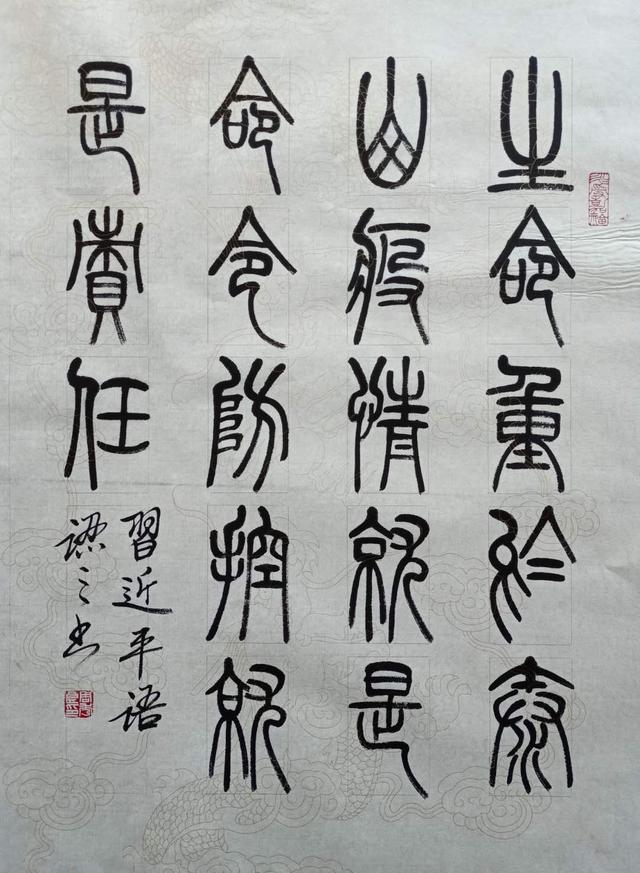 生命重於泰
山疫情就是
命令防控就
是責任
習近平語
之书